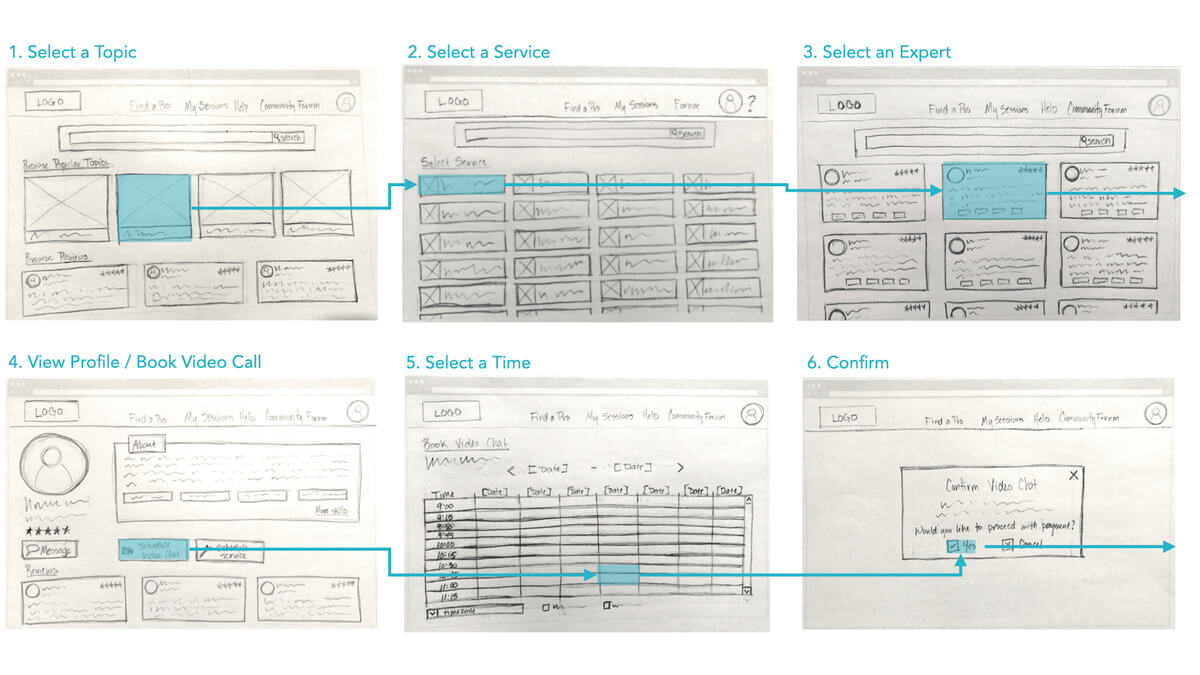 1. Select a Topic
LOGO
Find a Pro My Sessions Help Community Forum
search
Browse Popular Topics
Browse Reviews
2. Select a Service
LOGO
Find a Pro My Sessions Forum ?
search
Select Service
3. Select an Expert
LOGO
Find a Pro My Sessions Help Community Forum
search
4. View Profile / Book Video Call
LOGO
Find a Pro My Sessions Help Community Forum
About
More skills
Message
Schedule
Video Chat
Schedule
Service
Reviews
5. Select a Time
LOGO
Find a Pro My Sessions Help Community Forum
Book Video Chat
< [Date] - [Date] >
Time [Date] [Date] [Date] [Date] [Date] [Date] [Date]
9:00
9:15
9:30
9:45
10:00
10:15
10:30
10:45
11:00
11:15
timezone
6. Confirm
LOGO
Find a Pro My Sessions Help Community Forum
X
Confirm Video Chat
Would you like to proceed with payment?
Yes Cancel